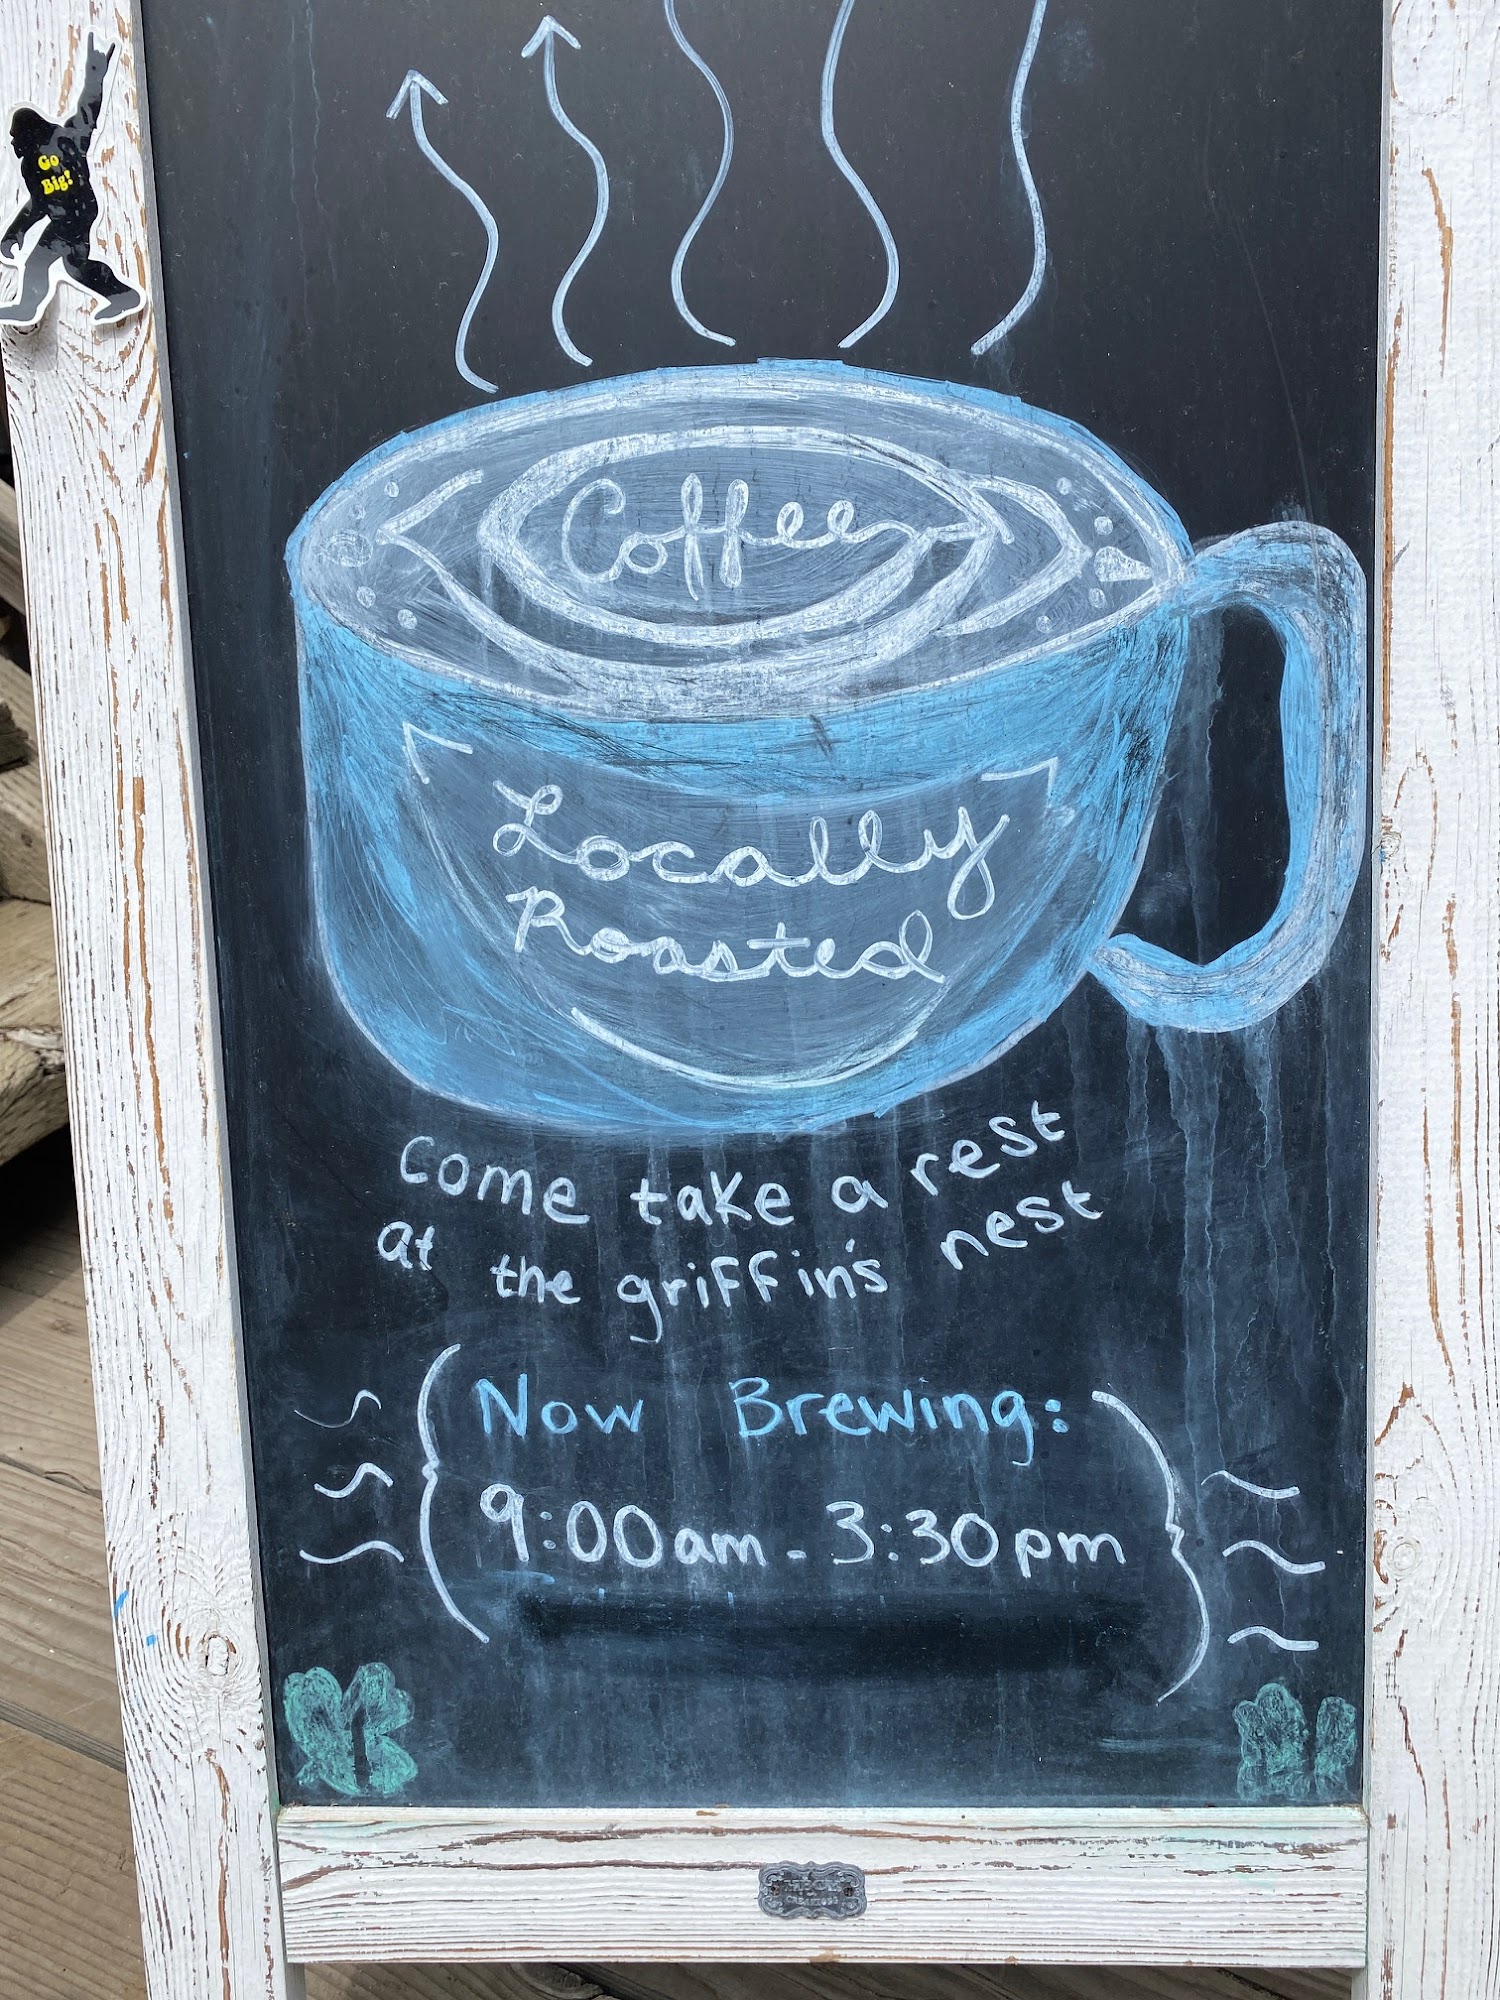 Go
Big!
Coffee
Locally
Roasted
Come take a rest
at the griffin's nest
Now Brewing:
9:00am - 3:30pm